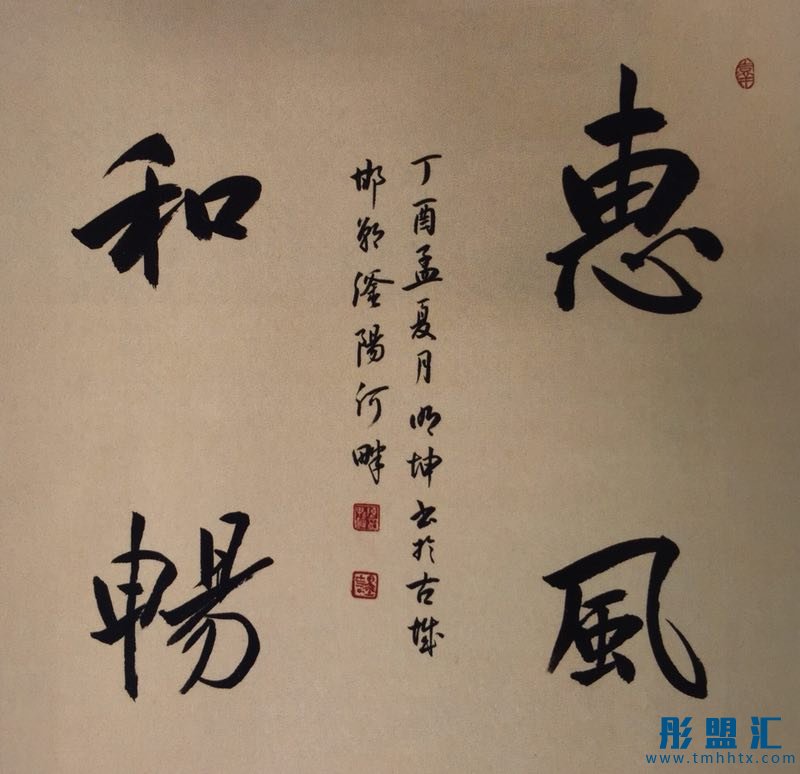 惠風
和暢
丁酉孟夏月明坤書於古城
邯鄲滏陽河畔
彤盟汇
www.tmhhtx.com